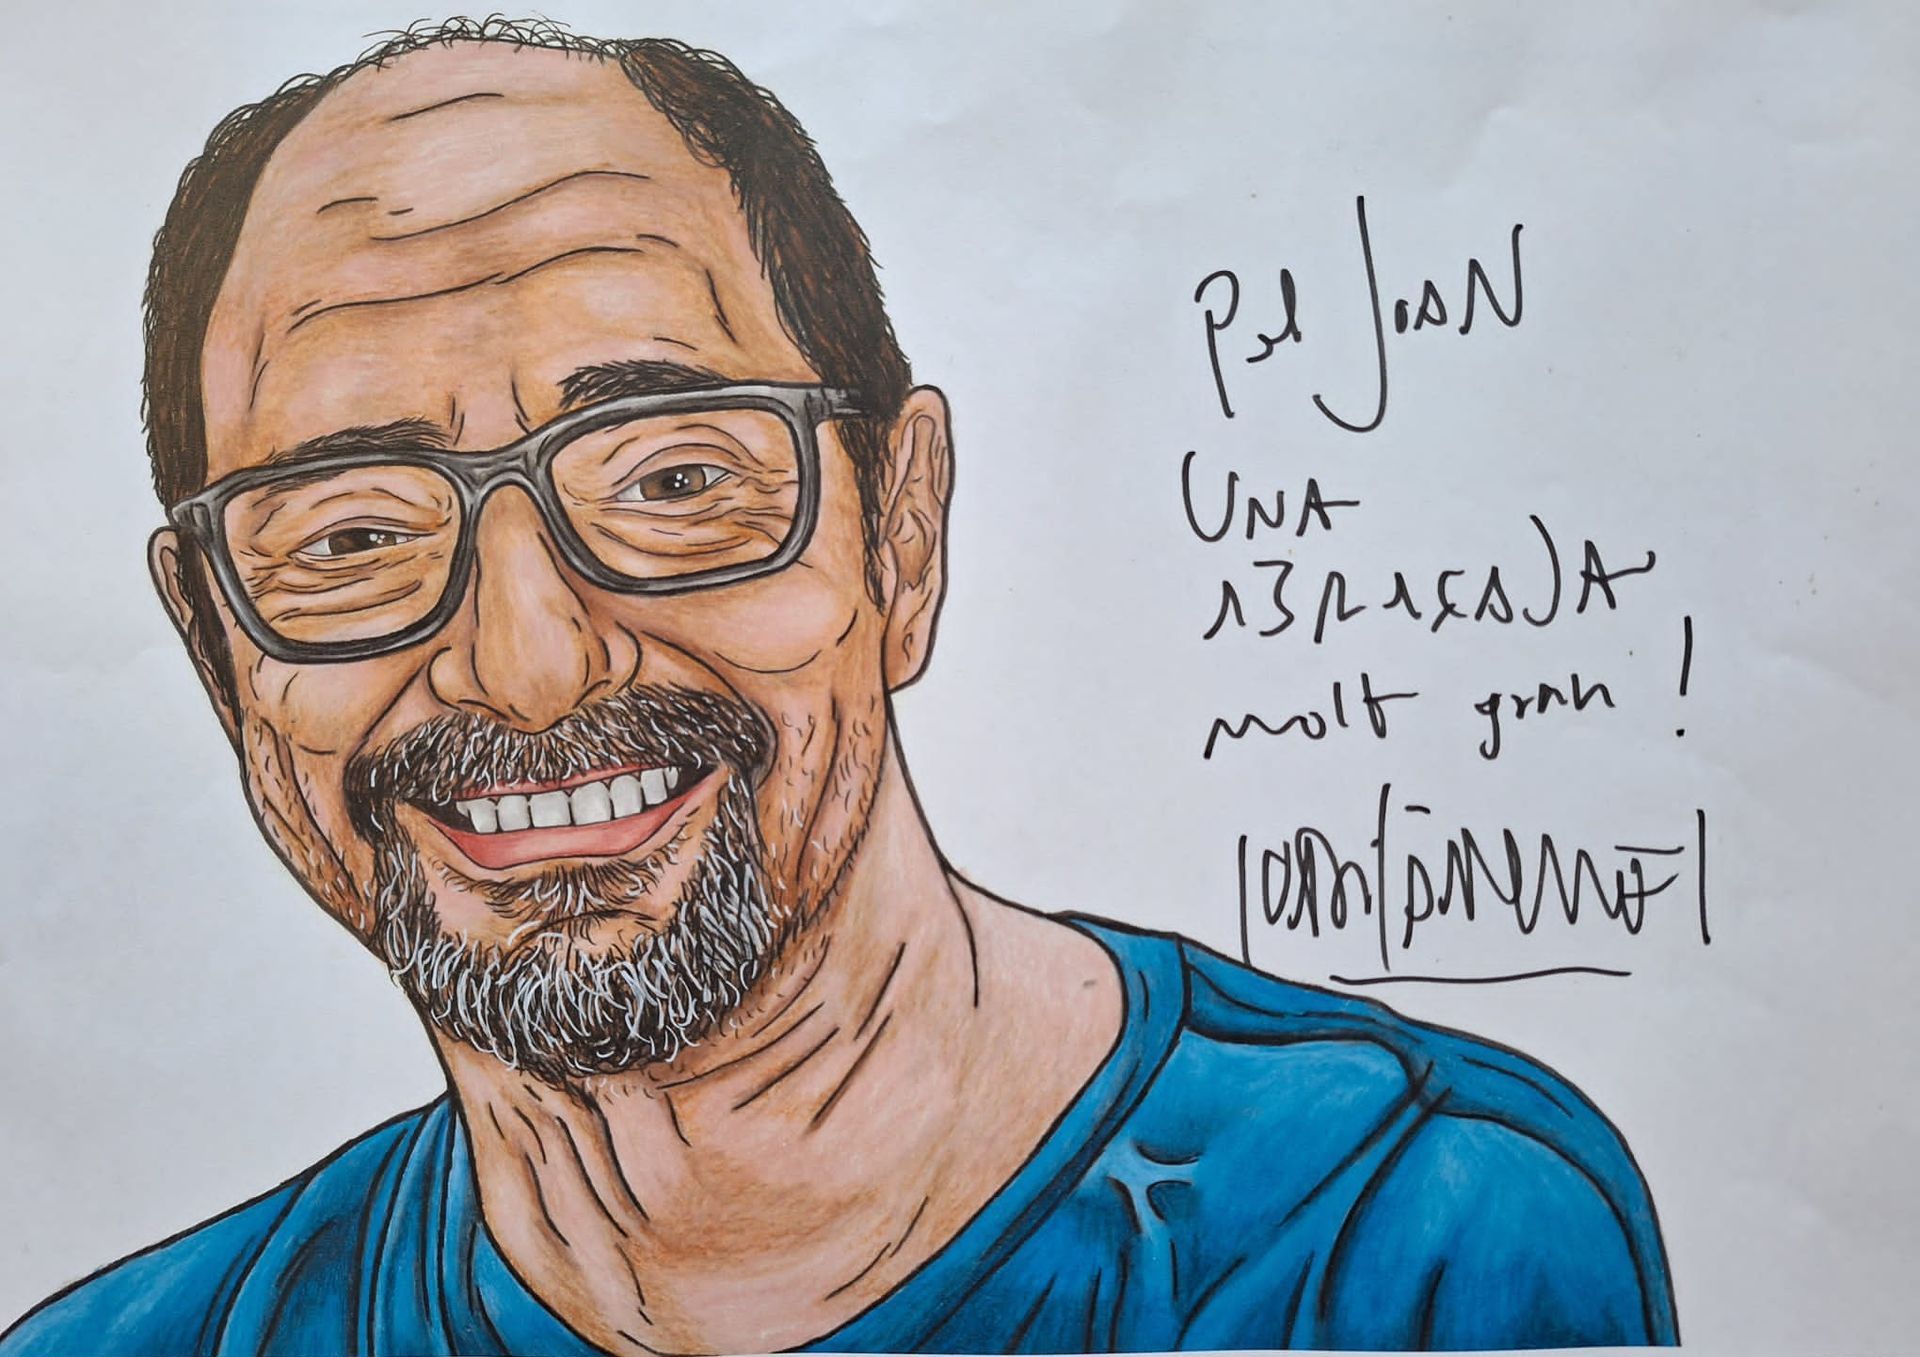 Pel JOAN
UNA
ABRAÇADA
molt gran !